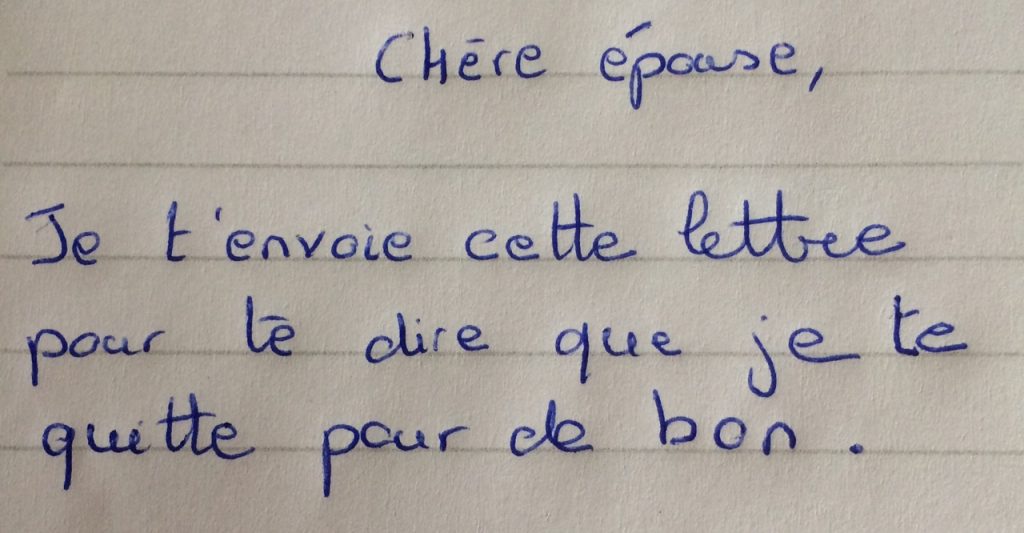 Chère épouse,
Je t'envoie cette lettre
pour te dire que je te
quitte pour de bon.